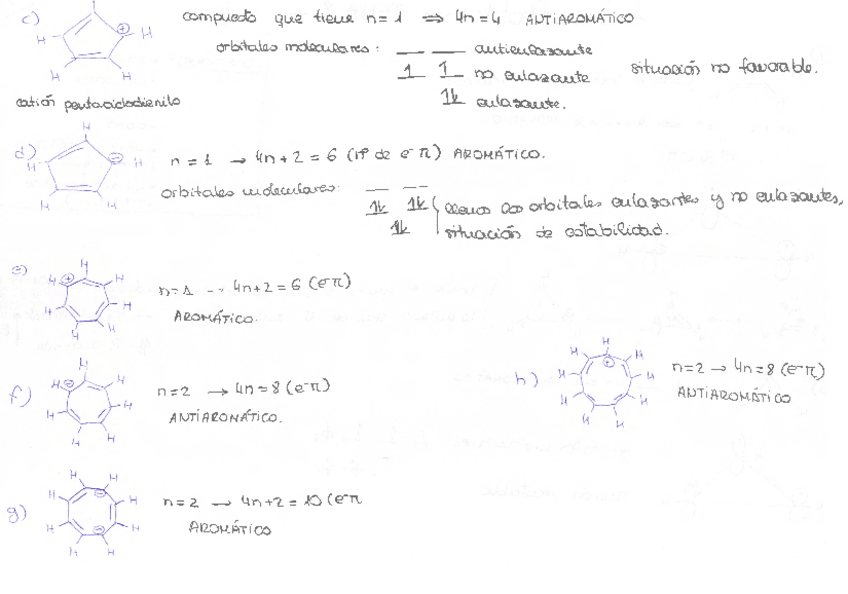 c) compuesto que tiene n=1 ⇒ 4n=4 ANTIAROMÁTICO
orbitales moleculares: antienlazante
1 1 no enlazante situación no favorable.
1k enlazante.
H H H H ⊕
catión pentaciclodienilo
d) n=1 → 4n+2=6 (nº de e⁻π) AROMÁTICO.
H H H H H ⊖
orbitales moleculares:
1k 1k llenos los orbitales enlazantes y no enlazantes,
1k situación de estabilidad.
e) n=1 -- 4n+2=6 (e⁻π)
AROMÁTICO.
H H H H H H H ⊕
f) n=2 → 4n=8 (e⁻π)
ANTIAROMÁTICO.
H H H H H H H ⊖
h) n=2 → 4n=8 (e⁻π)
ANTIAROMÁTICO
H H H H H H H H H ⊕
g) n=2 → 4n+2=10 (e⁻π
AROMÁTICO
H H H H H H H H ⊖ ⊖